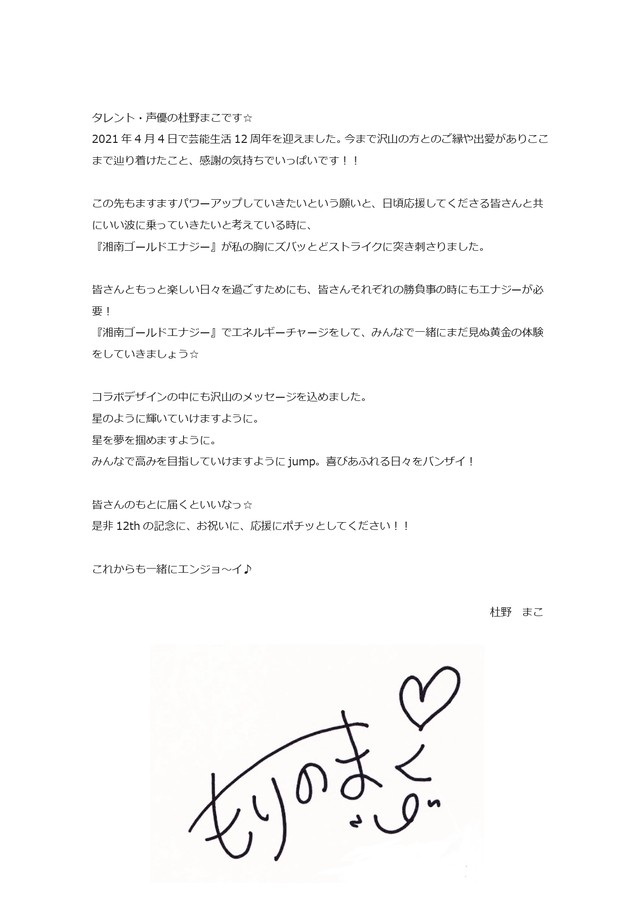 タレント・声優の杜野まこです☆
2021年4月4日で芸能生活12周年を迎えました。今まで沢山の方とのご縁や出愛がありここ
まで辿り着けたこと、感謝の気持ちでいっぱいです！！
この先もますますパワーアップしていきたいという願いと、日頃応援してくださる皆さんと共
にいい波に乗っていきたいと考えている時に、
『湘南ゴールドエナジー』が私の胸にズバッとどストライクに突き刺さりました。
皆さんともっと楽しい日々を過ごすためにも、皆さんそれぞれの勝負事の時にもエナジーが必
要！
『湘南ゴールドエナジー』でエネルギーチャージをして、みんなで一緒にまだ見ぬ黄金の体験
をしていきましょう☆
コラボデザインの中にも沢山のメッセージを込めました。
星のように輝いていけますように。
星を夢を掴めますように。
みんなで高みを目指していけますようにjump。喜びあふれる日々をバンザイ！
皆さんのもとに届くといいなっ☆
是非12thの記念に、お祝いに、応援にポチッとしてください！！
これからも一緒にエンジョ～イ♪
杜野　まこ
もりのまこ